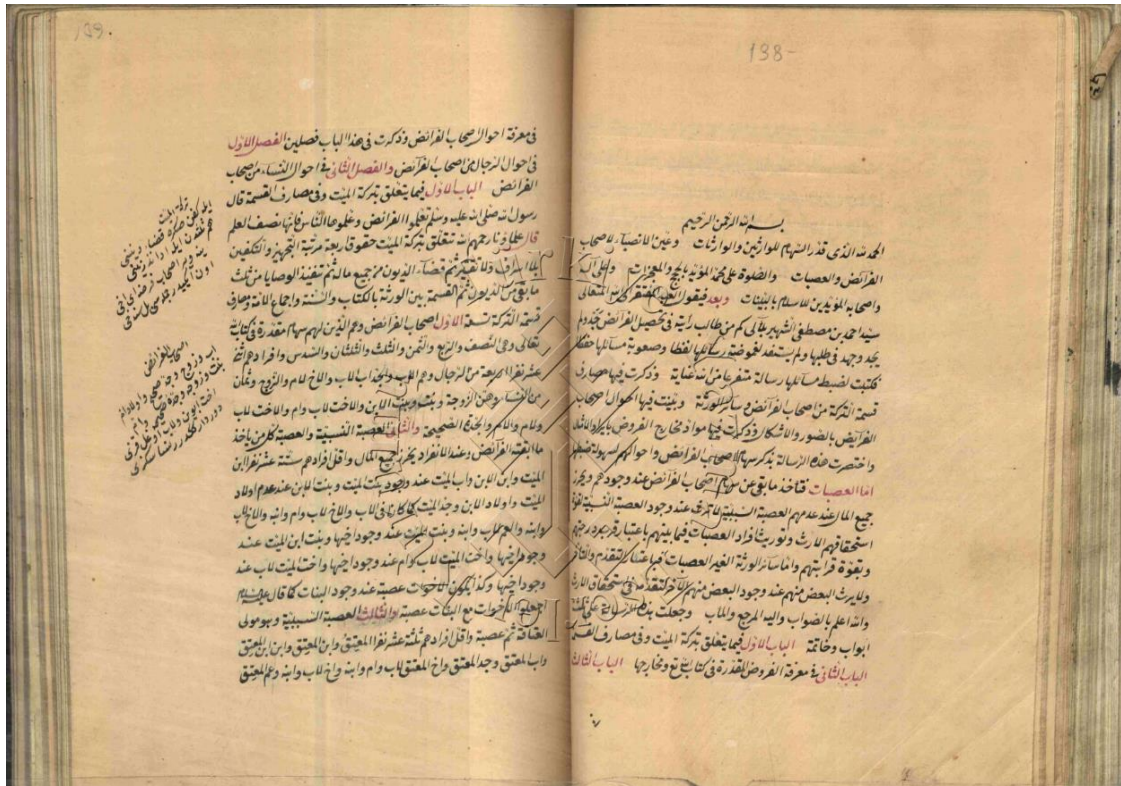 138-
بسم الله الرحمن الرحيم
الحمد لله الذى قدر السهام للوارثين والوارثات وعين الانصباء لاصحاب
الفرائض والعصبات والصلوة على محمد المؤيد بالحجج والمعجزات وعلى آله
واصحابه المؤيدين للاسلام بالبينات وبعد فيقول العبد المفتقر الى الله المتعالى
سيد احمد بن مصطفى الشهير بلآلى كم من طالب رأيته فى تحصيل الفرائض مجد ولم
يجد وجهد فى طلبها ولم يستفد لغموضة رسائلها لفظا وصعوبة مسائلها حفظا
فكتبت لضبط مسائلها رسالة متضرعا من الله عناية وذكرت فيها مصارف
قسمة التركة من اصحاب الفرائض وسائر الورثة وبينت فيها احوال اصحاب
الفرائض بالصور والاشكال وذكرت فيها مواد مخارج الفروض بايراد الامثال
واختصرت هذه الرسالة بذكر سهام اصحاب الفرائض واحوالهم لسهولة ضبطها
اما العصبات فتأخذ ما بقى عن سهام اصحاب الفرائض عند وجودهم ويحرز
جميع المال عند عدمهم العصبة السببية لا ترث عند وجود العصبة النسبية لقوة
استحقاقهم الارث وتوريث افراد العصبات فيما بينهم باعتبار قرب درجتهم
وبقوة قرابتهم واما سائر الورثة الغير العصبات فباعتبار التقدم والتأخر
ولا يرث البعض منهم عند وجود البعض منهم الآخر لتقدمه فى استحقاق الارث
والله اعلم بالصواب واليه المرجع والمآب وجعلت هذه الرسالة على ثلثة
ابواب وخاتمة الباب الاول فيما يتعلق بتركة الميت وفى مصارف القسمة
الباب الثانى فى معرفة الفروض المقدرة فى كتاب الله تع ومخارجها الباب الثالث
فى
139.
فى معرفة احوال اصحاب الفرائض وذكرت فى هذا الباب فصلين الفصل الاول
فى احوال الرجال من اصحاب الفرائض والفصل الثانى فى احوال النساء من اصحاب
الفرائض الباب الاول فيما يتعلق بتركة الميت وفى مصارف القسمة قال
رسول الله صلى الله عليه وسلم تعلموا الفرائض وعلموها الناس فانها نصف العلم
قال علماؤنا رحمهم الله تتعلق بتركة الميت حقوق اربعة مرتبة التجهيز والتكفين
بلا اسراف ولا تقتير ثم قضاء الديون من جميع ماله ثم تنفيذ الوصايا من ثلث
ما بقى من الديون ثم القسمة بين الورثة بالكتاب والسنة واجماع الامة ومصارف
قسمة التركة تسعة الاول اصحاب الفرائض وهم الذين لهم سهام مقدرة فى كتاب الله
تعالى وهى النصف والربع والثمن والثلث والثلثان والسدس وافرادهم اثنى
عشر نفرا اربعة من الرجال وهم الاب والجد اب الاب والاخ لام والزوج وثمان
من النساء وهن الزوجة وبنت وبنت الابن والاخت لاب وام والاخت لاب
ولام والام والجدة الصحيحة والثانى العصبة النسبية والعصبة كل من يأخذ
ما ابقته الفرائض وعند الانفراد يحرز جميع المال واقل افرادهم ستة عشر نفرا ابن
الميت وابن الابن واب الميت عند وجود بنت الميت وبنت الابن عند عدم اولاد
الميت واولاد الابن وجد الميت كما كان فى الاب والاخ لاب وام وابنه والاخ لاب
وابنه والعم لاب وابنه وبنت الميت عند وجود اخيها وبنت ابن الميت عند
وجود اخيها واخت الميت لاب وام عند وجود اخيها واخت الميت لاب عند
وجود اخيها وكذا يكون الاخوات عصبة عند وجود البنات كما قال عليه السلام
اجعلوا الاخوات مع البنات عصبة والثالث العصبة السببية وهو مولى
العتاقة ثم عصبة واقل افرادهم ثلثة عشر نفرا المعتق وابن المعتق وابن ابن المعتق
واب المعتق وجد المعتق واخ المعتق لاب وام وابنه واخ لاب وابنه وعم المعتق
تركة الميت
اصحاب الفرائض